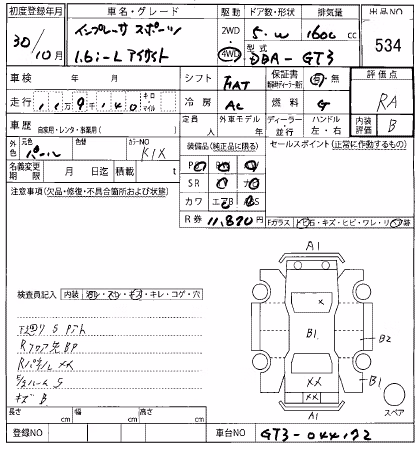 初度登録年月 車名・グレード 駆動 ドア数・形状 排気量 出品NO
30/10月 インプレーサ スポーツ 2WD 5・W 1600cc 534
1.6i-L アイサイト 4WD 型式 DBA-GT3
車検 年 月 シフト FAT 保証書 有・無 評価点
走行 119140 キロ・マイル 冷房 AC 燃料 G RA
車歴 自家用・レンタ・事業用( ) 定員 人 外車モデル 年 ディーラー・並行 ハンドル 左・右 内装評価 B
外色 元色 パール 色替 カラーNO K1X 装備品(純正品に限る) セールスポイント(正常に作動するもの)
名義変更期限 月 日迄 積載 t
注意事項(欠品・修復・不具合箇所および状態) SR
カワ エアB
R券 11,820円 Fガラス
A1
検査員記入 内装 キレ・コゲ・穴
X
下廻り S
B1
B2
Rパネル XX
XX
B1
キズ B
X
A1
スペア
長さ cm 幅 cm 高さ cm
登録NO 車台NO GT3-044122